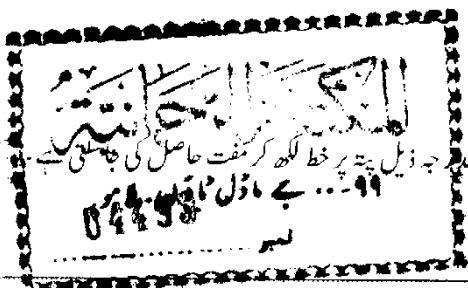 المكتبة الرحمانية
درجہ ذیل پتہ پر خط لکھ کر مفت حاصل کی جا سکتی ہے۔
۹۹۔.. جے ماڈل ٹاؤن۔ لاہور
نمبر ....................